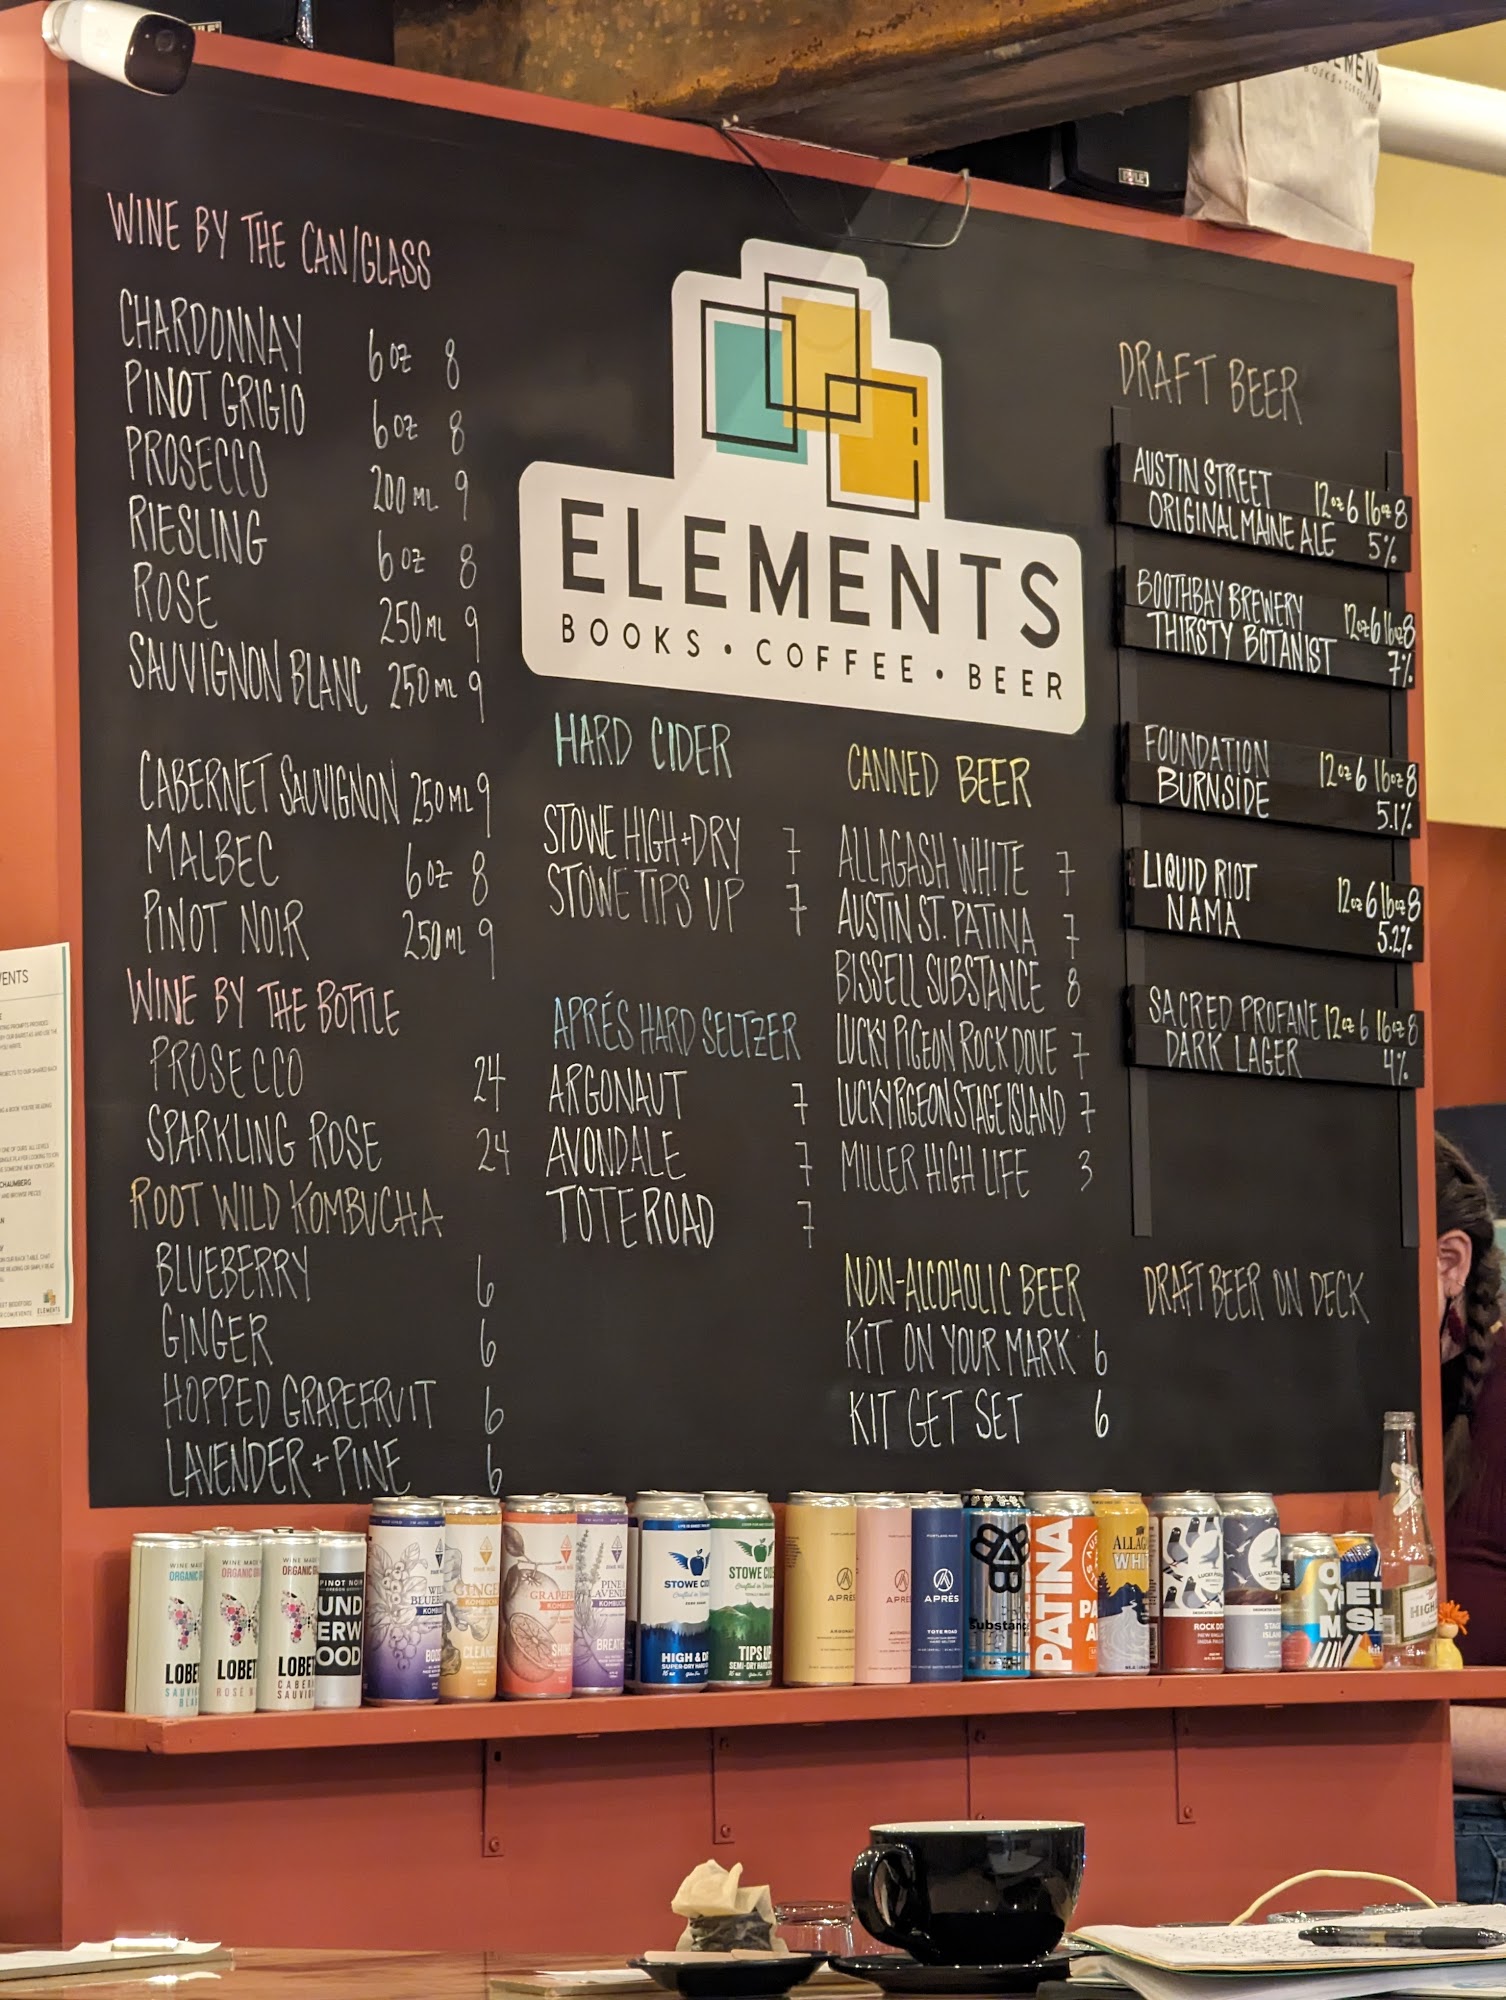 WINE BY THE CAN/GLASS
CHARDONNAY 6oz 8
PINOT GRIGIO 6oz 8
PROSECCO 200ML 9
RIESLING 6oz 8
ROSE 250ML 9
SAUVIGNON BLANC 250ML 9
CABERNET SAUVIGNON 250ML 9
MALBEC 6oz 8
PINOT NOIR 250ML 9
WINE BY THE BOTTLE
PROSECCO 24
SPARKLING ROSE 24
ROOT WILD KOMBUCHA
BLUEBERRY 6
GINGER 6
HOPPED GRAPEFRUIT 6
LAVENDER + PINE 6
ELEMENTS
BOOKS • COFFEE • BEER
HARD CIDER
STOWE HIGH + DRY 7
STOWE TIPS UP 7
APRÉS HARD SELTZER
ARGONAUT 7
AVONDALE 7
TOTE ROAD 7
CANNED BEER
ALLAGASH WHITE 7
AUSTIN ST. PATINA 7
BISSELL SUBSTANCE 8
LUCKY PIGEON ROCK DOVE 7
LUCKY PIGEON STAGE ISLAND 7
MILLER HIGH LIFE 3
NON-ALCOHOLIC BEER
KIT ON YOUR MARK 6
KIT GET SET 6
DRAFT BEER
AUSTIN STREET 12oz 6 16oz 8
ORIGINAL MAINE ALE 5%
BOOTHBAY BREWERY 12oz 6 16oz 8
THIRSTY BOTANIST 7%
FOUNDATION 12oz 6 16oz 8
BURNSIDE 5.1%
LIQUID RIOT 12oz 6 16oz 8
NAMA 5.2%
SACRED PROFANE 12oz 6 16oz 8
DARK LAGER 4%
DRAFT BEER ON DECK
PINOT NOIR
STOWE
HIGH & D
SUPER-DRY
STOWE
TIPS UP
SEMI-DRY
APRÈS
TOTE ROAD
Substanc
PATINA
ALLAG
WHIT
ROCK DO
STAG
ISLAN
HIGH